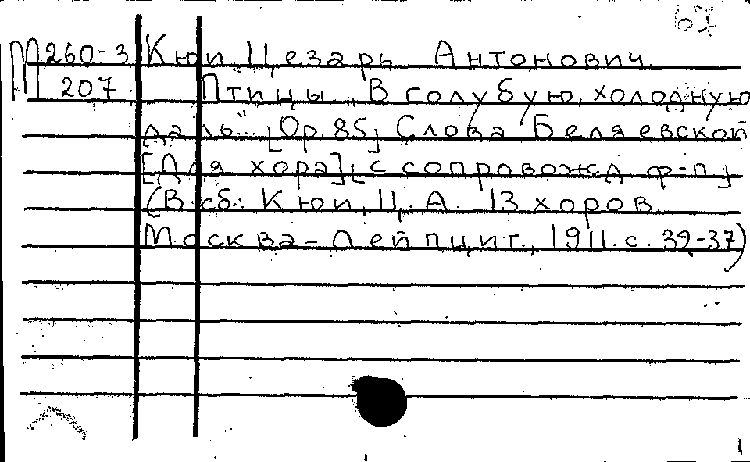 67
М260-3 Кюи, Цезарь Антонович.
207 Птицы „В голубую, холодную
даль". [Ор. 85] Слова Беляевской
[Для хора] [с сопровожд. ф-п]
(В сб.: Кюи, Ц. А. 13 хоров.
Москва-Лейпциг, 1911. с. 32-37)